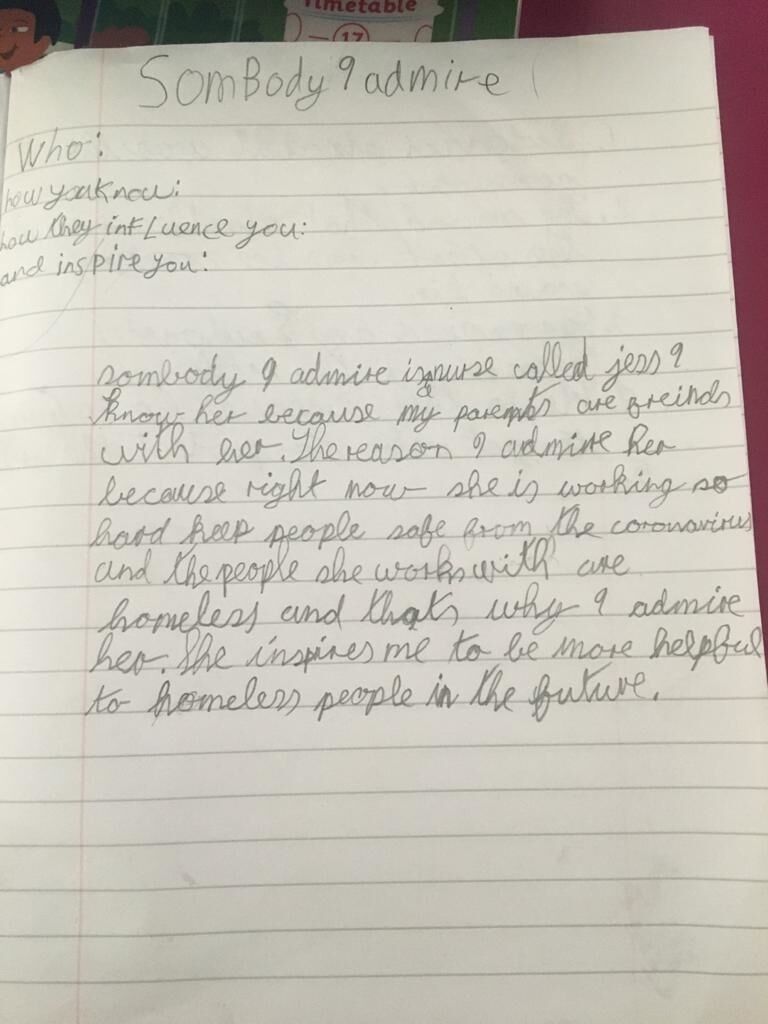 Timetable
17
SomBody I admire
Who:
how you know:
how they influence you:
and inspire you:
sombody I admire is a nurse called jess I
know her because my parents are freinds
with her. The reason I admire her
because right now she is working so
hard keep people safe from the coronavirus
and the people she works with are
homeless and thats why I admire
her. She inspires me to be more helpful
to homeless people in the future.